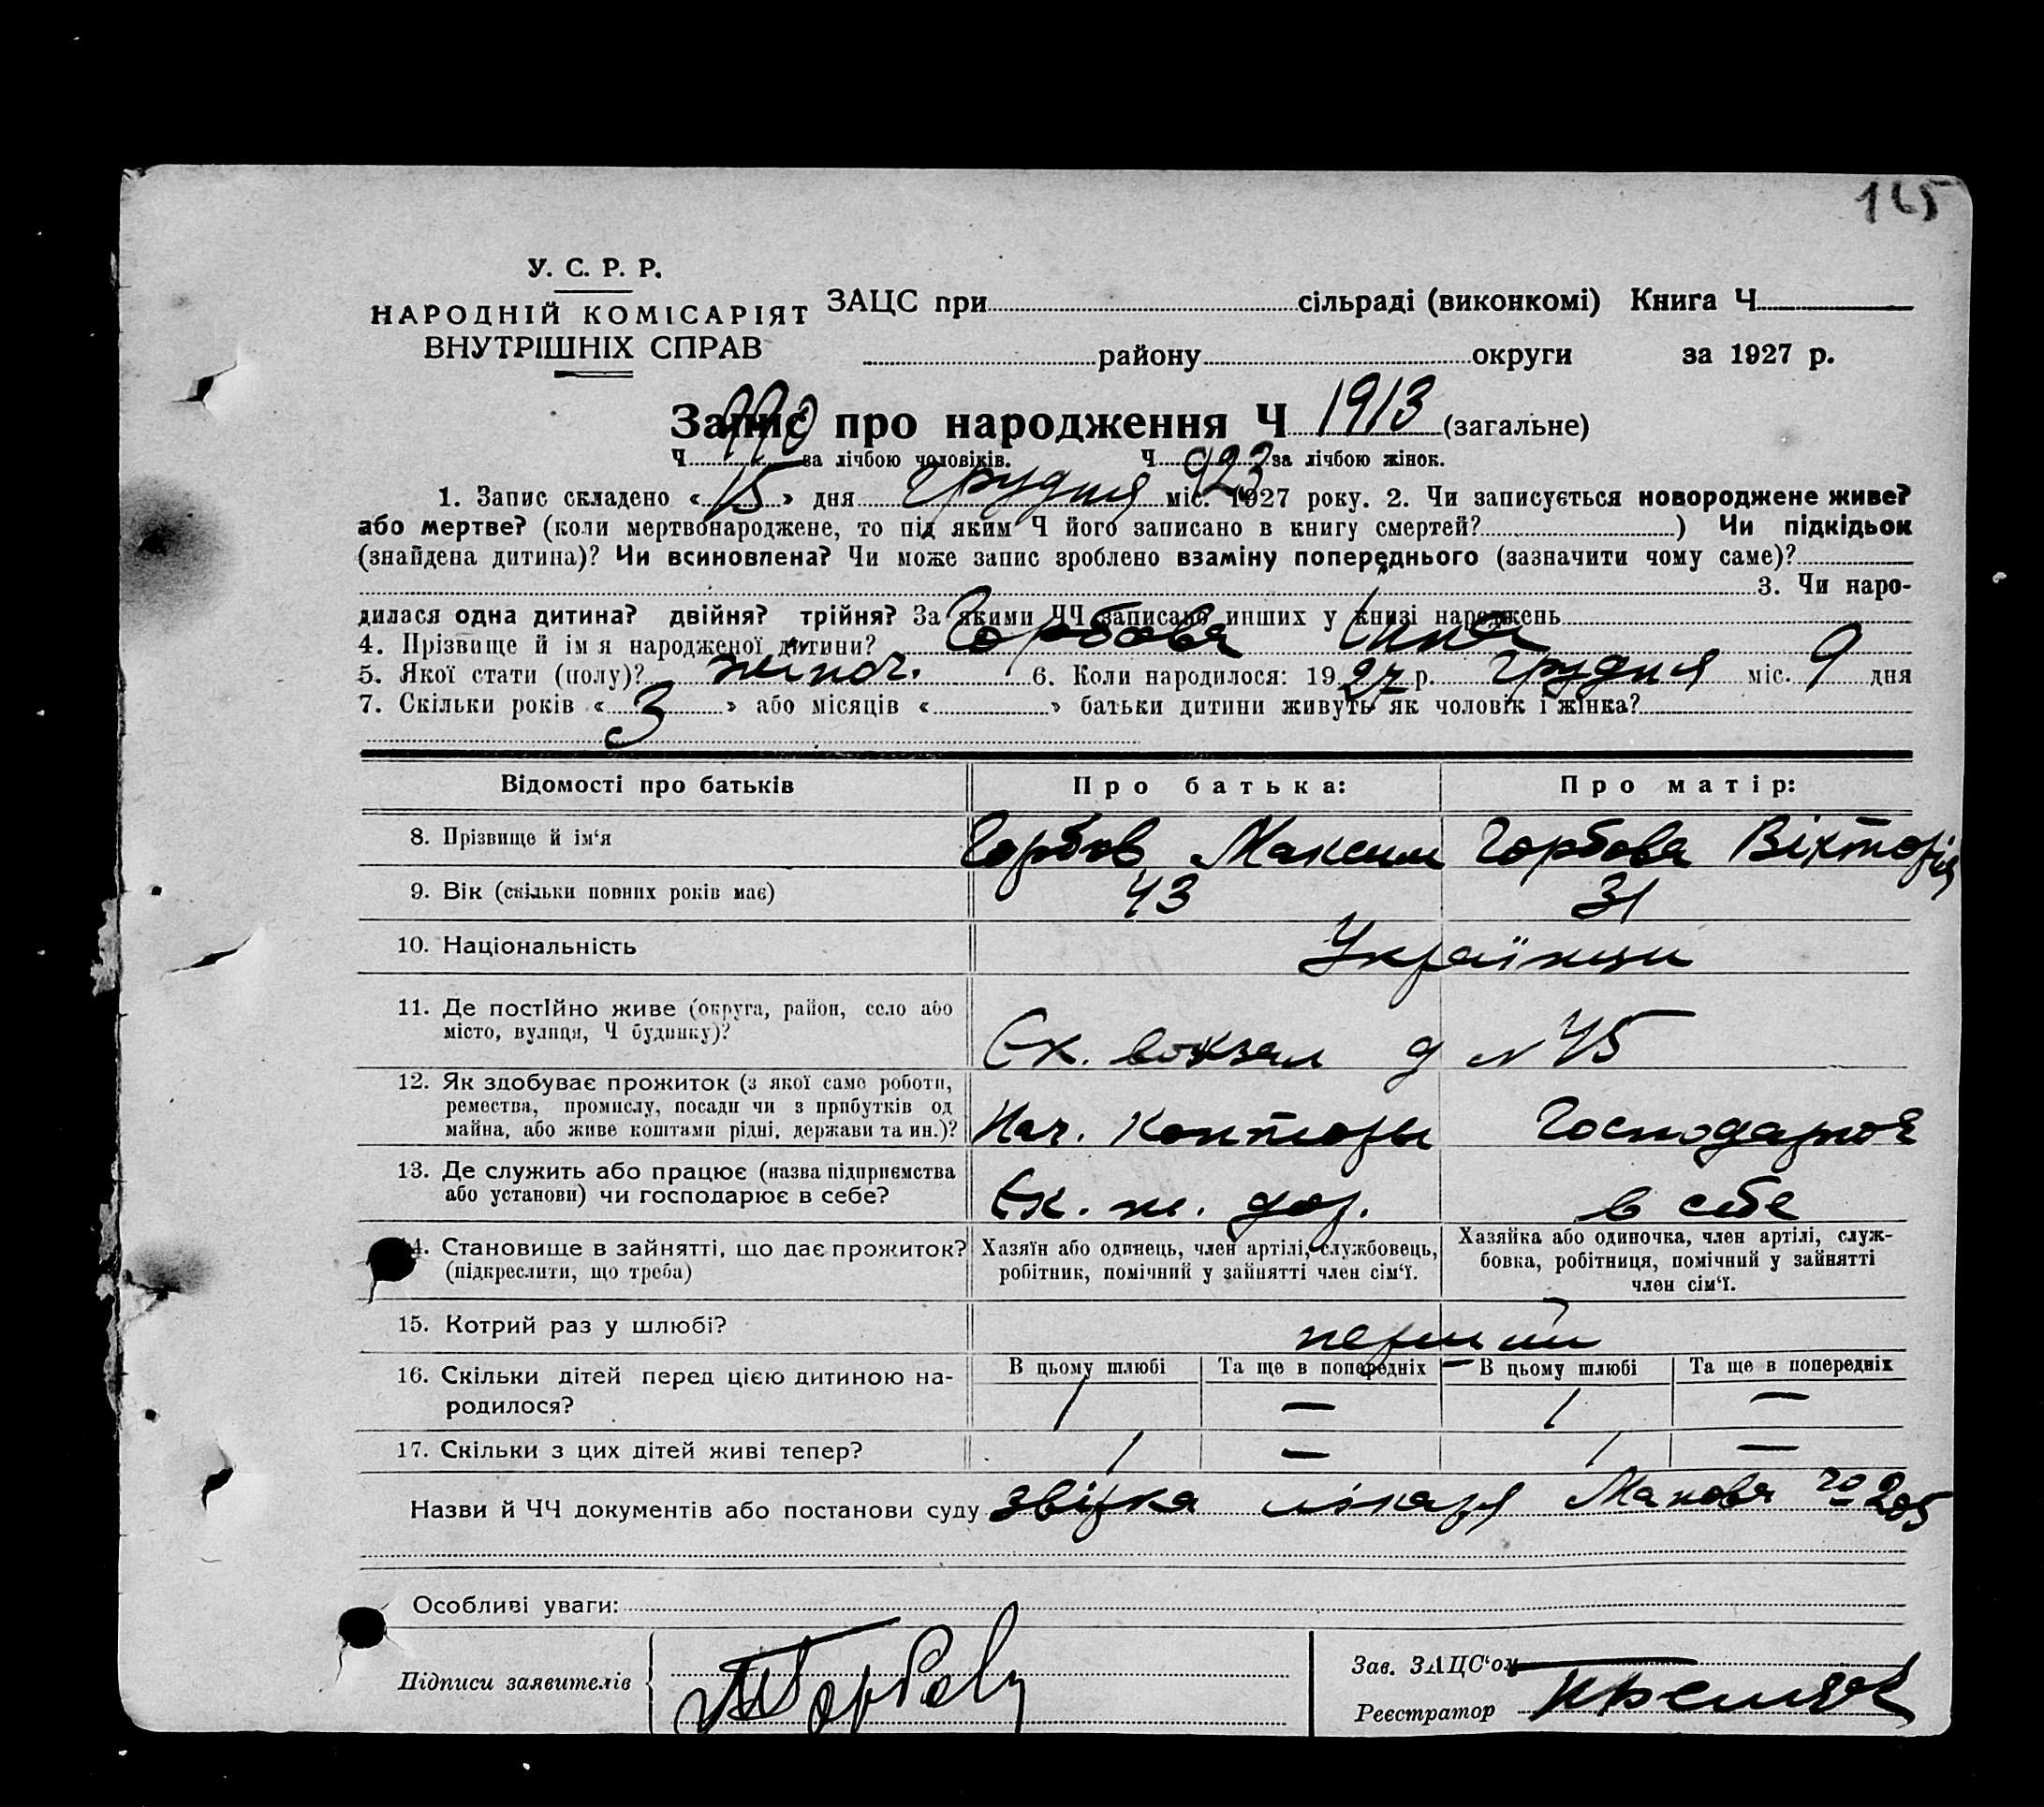 165
У. С. Р. Р.
НАРОДНІЙ КОМІСАРІЯТ
ВНУТРІШНІХ СПРАВ
ЗАЦС при сільраді (виконкомі) Книга Ч
району округи за 1927 р.
Запис про народження Ч 1913 (загальне)
Ч 990 за лічбою чоловіків. Ч 923 за лічбою жінок.
1. Запис складено « 15 » дня грудня міс. 1927 року. 2. Чи записується новороджене живе?
або мертве? (коли мертвонароджене, то під яким Ч його записано в книгу смертей? ) Чи підкідьок
(знайдена дитина)? Чи всиновлена? Чи може запис зроблено взаміну попереднього (зазначити чому саме)?
3. Чи наро-
дилася одна дитина? двійня? трійня? За якими ЧЧ записано инших у книзі народжень
4. Прізвище й ім'я народженої дитини? Горбова Інна
5. Якої стати (полу)? жіноч. 6. Коли народилося: 1927 р. грудня міс. 9 дня
7. Скільки років « 3 » або місяців « » батьки дитини живуть як чоловік і жінка?
Відомості про батьків Про батька: Про матір:
8. Прізвище й ім'я Горбов Максим Горбова Віхторія
9. Вік (скільки повних років має) 43 31
10. Національність Українци
11. Де постійно живе (округа, район, село або
місто, вулиця, Ч будинку)? Ек. вокзал д № 45
12. Як здобуває прожиток (з якої само роботи,
ремества, промислу, посади чи з прибутків од
майна, або живе коштами рідні, держави та ин.)? Нач. Конторы Господарює
13. Де служить або працює (назва підприємства
або установи) чи господарює в себе? Ек. ж. дор. в себе
14. Становище в зайнятті, що дає прожиток?
(підкреслити, що треба)
Хазяїн або одинець, член артілі, службовець,
робітник, помічний у зайнятті член сім'ї.
Хазяйка або одиночка, член артілі, служ-
бовка, робітниця, помічний у зайнятті
член сім'ї.
15. Котрий раз у шлюбі? перший
16. Скільки дітей перед цією дитиною на-
родилося?
В цьому шлюбі Та ще в попередніх В цьому шлюбі Та ще в попередніх
1 — 1 —
17. Скільки з цих дітей живі тепер? 1 — 1 —
Назви й ЧЧ документів або постанови суду звірка лікаря 205
Особливі уваги:
Підписи заявителів МГорбов
Зав. ЗАЦС'ом
Реєстратор